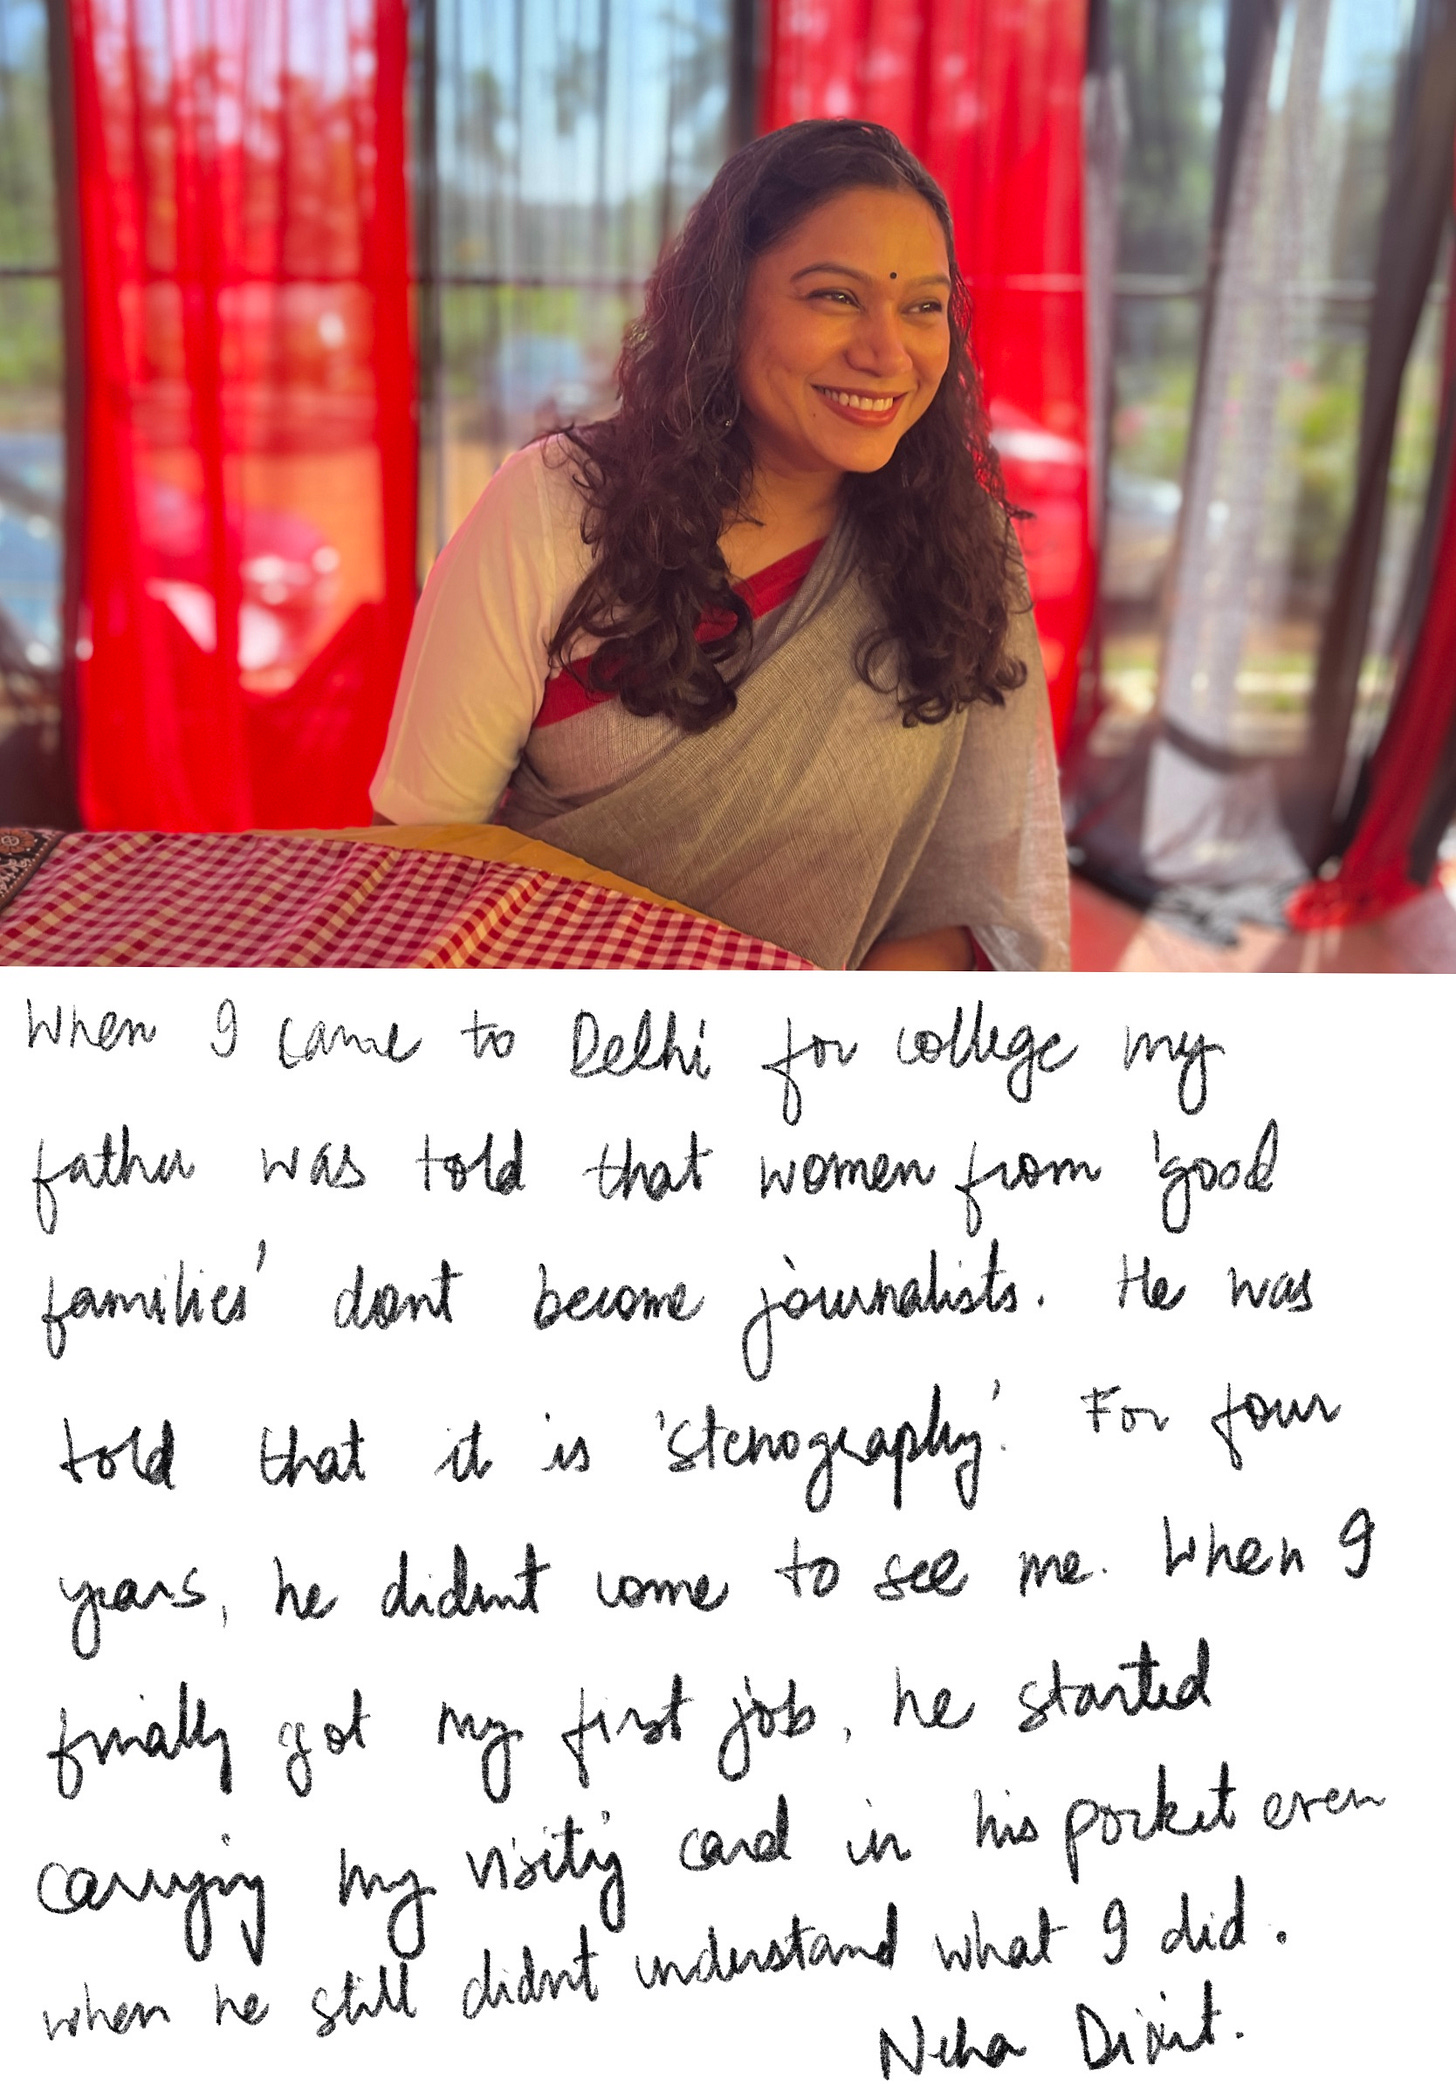 When I came to Delhi for college my
father was told that women from 'good
families' dont become journalists. He was
told that it is 'stenography'. For four
years, he didnt come to see me. When I
finally got my first job, he started
carrying my visiting card in his pocket even
when he still didnt understand what I did.
Neha Dixit.